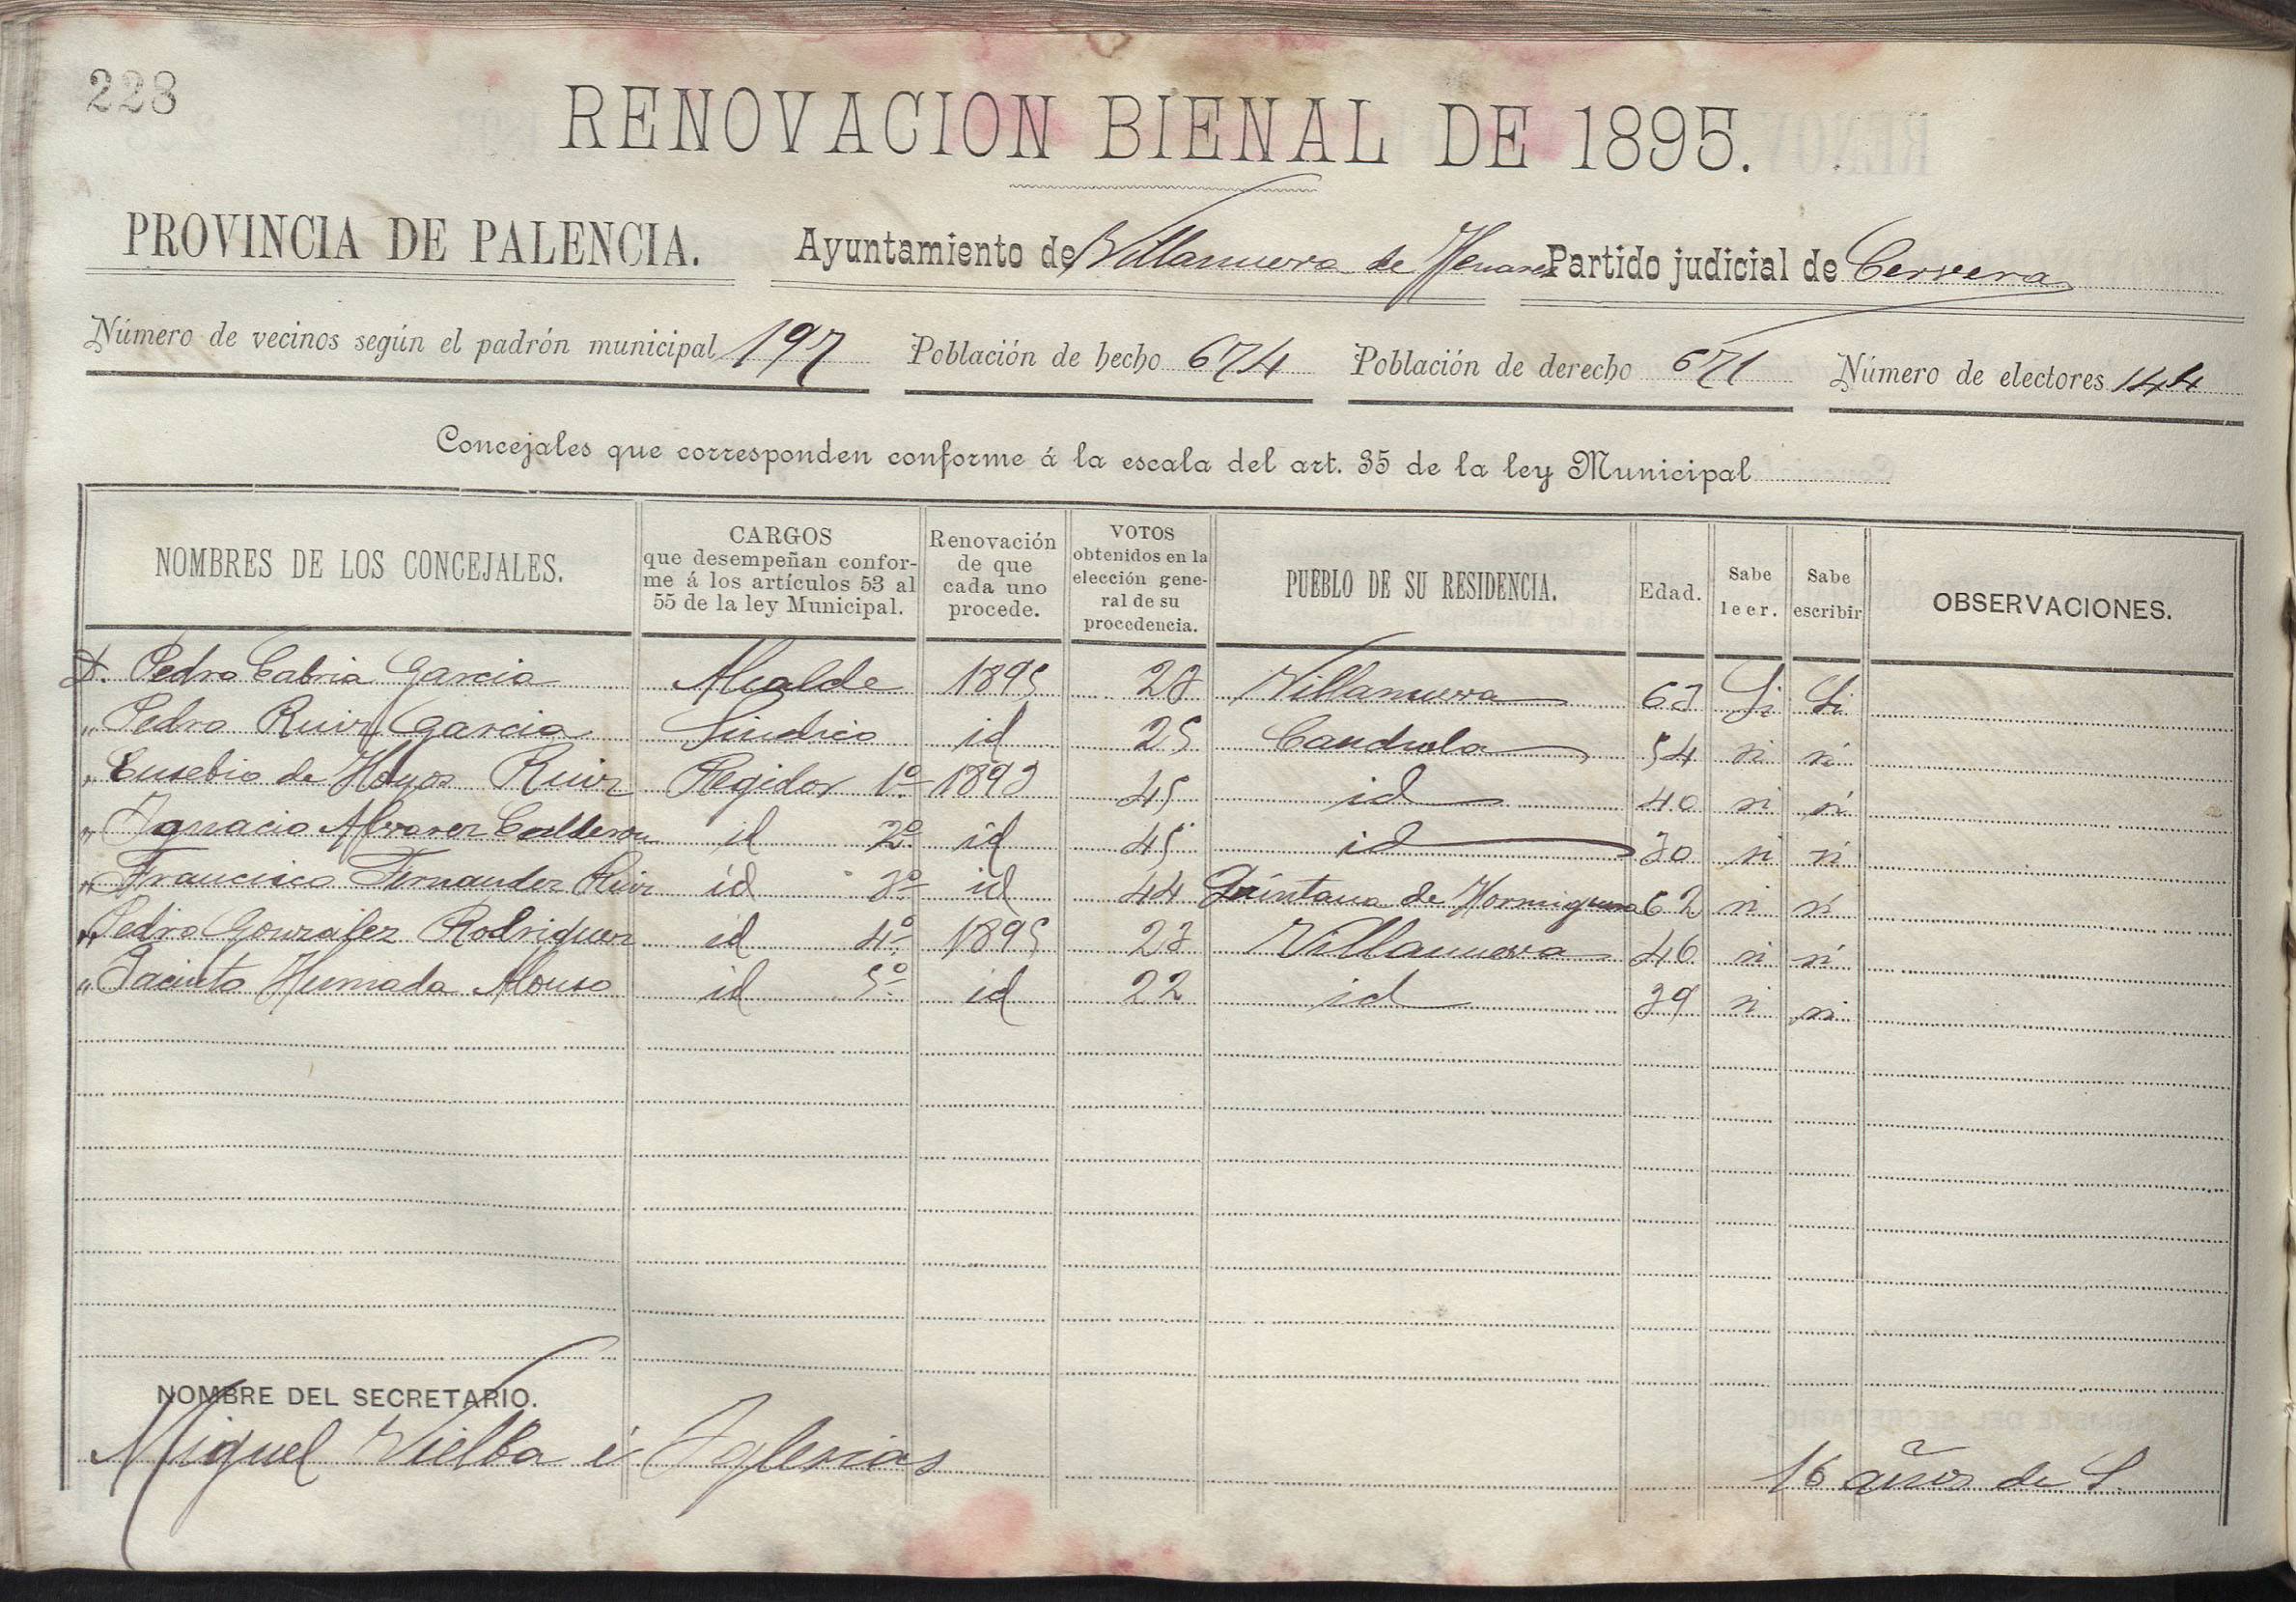 228
RENOVACION BIENAL DE 1895.
PROVINCIA DE PALENCIA. Ayuntamiento de Villanueva de Henares Partido judicial de Cervera
Número de vecinos según el padrón municipal 197 Población de hecho 674 Población de derecho 671 Número de electores 144
Concejales que corresponden conforme á la escala del art. 35 de la ley Municipal
NOMBRES DE LOS CONCEJALES. CARGOS que desempeñan conforme á los artículos 53 al 55 de la ley Municipal. Renovación de que cada uno procede. VOTOS obtenidos en la elección general de su procedencia. PUEBLO DE SU RESIDENCIA. Edad. Sabe leer. Sabe escribir OBSERVACIONES.
D. Pedro Cabria Garcia Alcalde 1895 23 Villanueva 63 Si Si
" Pedro Ruiz Garcia Sindico id 25 Canduela 54 si si
" Eusebio de Hoyos Ruiz Regidor 1º 1893 45 id 40 si si
" Ignacio Alvarez Calderon id 2º id 45 id 30 si si
" Francisco Fernandez Ruiz id 3º id 44 Quintana de Hormiguera 62 si si
" Pedro Gonzalez Rodriguez id 4º 1895 23 Villanueva 46 si si
" Jacinto Humada Alonso id 5º id 22 id 39 si si
NOMBRE DEL SECRETARIO.
Miguel Vielba é Iglesias 16 años de S.